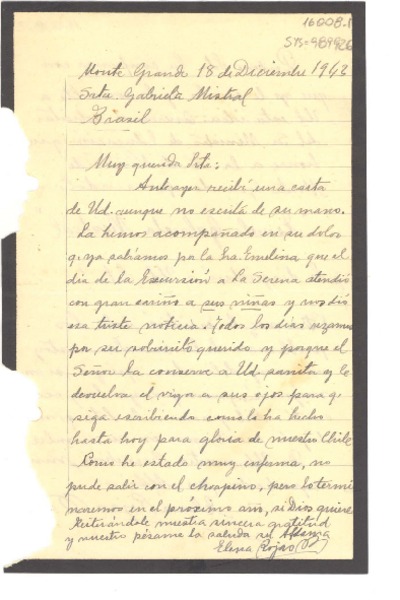 16008.1
Monte Grande 18 de Diciembre 1943
Srta Gabriela Mistral
Brasil
Muy querida Srta:
Anteayer recibí una carta
de Ud. aunque no escrita de su mano.
La hemos acompañado en su dolor
q. ya sabíamos por la Sra. Emelina que el
día de la Excursión a La Serena atendió
con gran cariño a sus niñas y nos dió
esa triste noticia. Todos los dias rezamos
por su sobrinito querido y porque el
Señor la conserve a Ud. sanita y le
devuelva el vigor a sus ojos para q.
siga escribiendo como lo ha hecho
hasta hoy para gloria de nuestro Chile
Como he estado muy enferma, no
pude salir con el choapino, pero lo termi
naremos en el próximo año, si Dios quiere
Reiterándole nuestra sincera gratitud
y nuestro pésame la saluda su
Elena Rojas